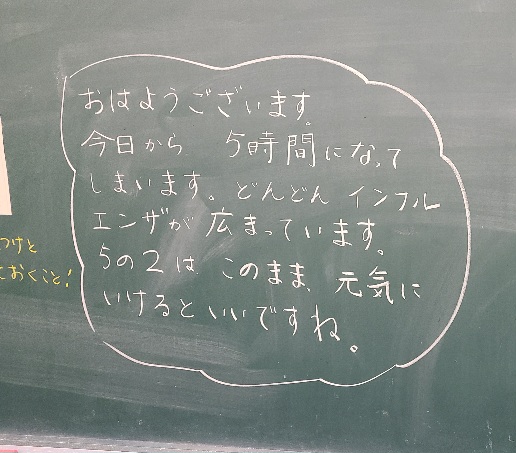 おはようございます。
今日から 5時間になって
しまいます。どんどん インフル
エンザが 広まっています。
5の2は このまま、元気に
いけるといいですね。
つけと
ておくこと!